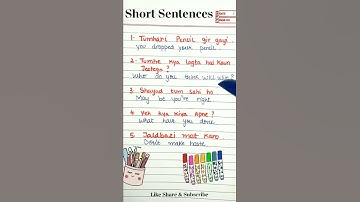 Short Sentences
1- Tumhari Pencil gir gayi
you dropped your pencil
2- Tumhe kya lagta hai kaun
Jeetega ?
Who do you think will win ?
3- Shayad tum sahi ho
May be you're right
4- Yeh kya kiya Apne ?
what have you done
5 Jaldbazi mat karo
Don't make haste
Like Share & Subscribe